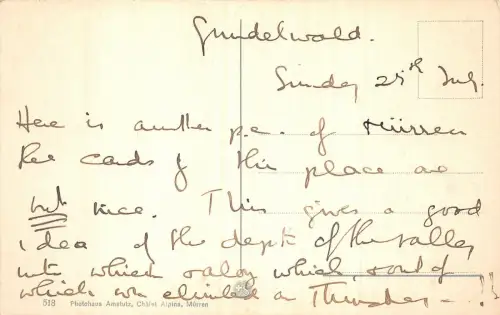 Grindelwald.
Sunday 25th July.
Here is another p.c. of Mürren
the cards of this place are
not nice. This gives a good
idea of the depth of the valley
into which & which, out of
which we climbed on Thursday - !!
518 Photohaus Amstutz, Châlet Alpina, Mürren